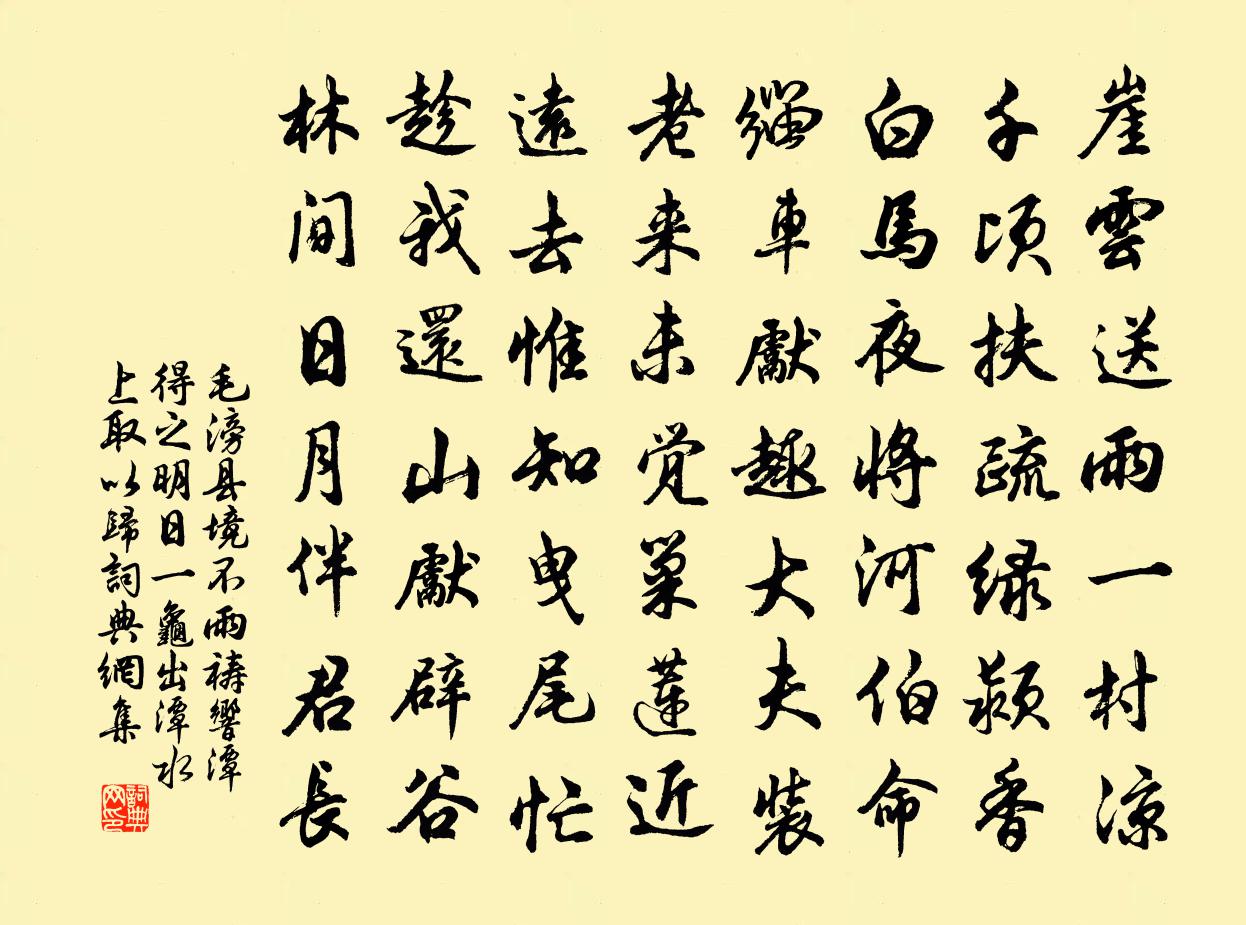 崖雲送雨一村涼
千頃扶疏緑穎香
白馬夜將河伯命
緇車獻趣大夫裝
老来未覚巢蓮近
遠去惟知曳尾忙
趁我還山獻辟谷
林間日月伴君長
毛滂县境不雨禱響潭
得之明日一龜出潭水
上取以歸詞典網集
詞典网印